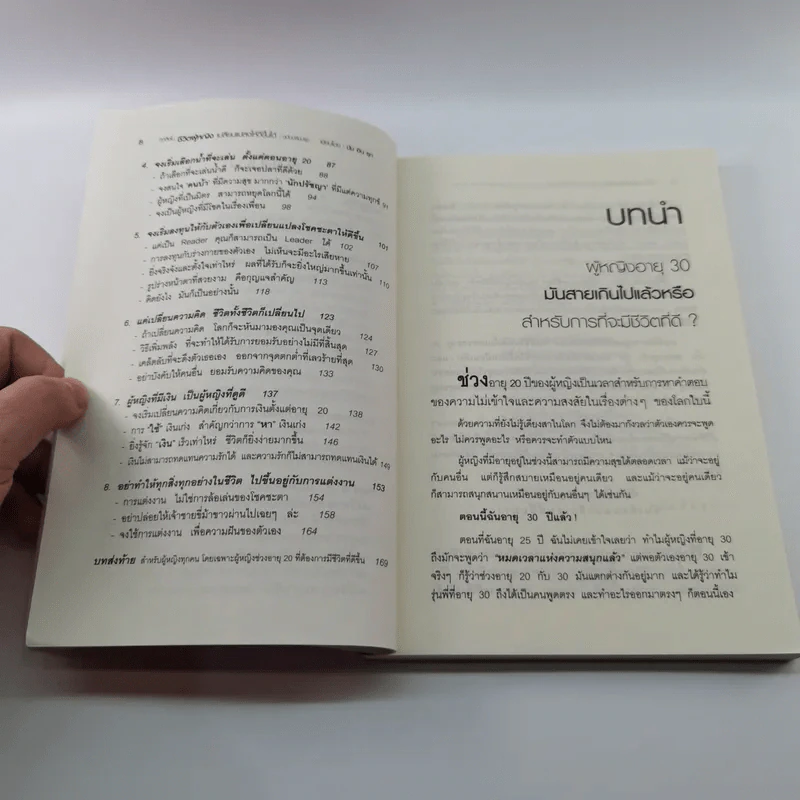 8
ชีวิตผู้หญิง เปลี่ยนแปลงให้ดีขึ้นได้
4. จงเริ่มเลือกน้ำที่จะเล่น ตั้งแต่ตอนอายุ 20 87
- ถ้าเลือกที่จะเล่นน้ำดี ก็จะเจอปลาที่ดีด้วย 88
- จงสนใจ "คนบ้า" ที่มีความสุข มากกว่า "นักปรัชญา" ที่มีแต่ความทุกข์ 91
- ผู้หญิงที่เป็นมิตร สามารถหยุดโลกนี้ได้ 94
- จงเป็นผู้หญิงที่มีโชคในเรื่องเพื่อน 98
5. จงเริ่มลงทุนให้กับตัวเองเพื่อเปลี่ยนแปลงโชคชะตาให้ดีขึ้น 101
- แค่เป็น Reader คุณก็สามารถเป็น Leader ได้ 102
- การลงทุนกับร่างกายของตัวเอง ไม่เห็นจะมีอะไรเสียหาย 107
- ยิ่งจริงจังและตั้งใจเท่าไหร่ ผลที่ได้รับก็จะยิ่งใหญ่มากขึ้นเท่านั้น 110
- รูปร่างหน้าตาที่สวยงาม คือกุญแจสำคัญ 113
- คิดยังไง มันก็เป็นอย่างนั้น 118
6. แค่เปลี่ยนความคิด ชีวิตทั้งชีวิตก็เปลี่ยนไป 123
- ถ้าเปลี่ยนความคิด โลกก็จะหันมามองคุณเป็นจุดเดียว 124
- วิธีเพิ่มพลัง ที่จะทำให้ได้รับการยอมรับอย่างไม่มีที่สิ้นสุด 127
- เคล็ดลับที่จะดึงตัวเธอเอง ออกจากจุดตกต่ำที่เลวร้ายที่สุด 130
- อย่าบังคับให้คนอื่น ยอมรับความคิดของคุณ 133
7. ผู้หญิงที่มีเงิน เป็นผู้หญิงที่ดูดี 137
- จงเริ่มเปลี่ยนความคิดเกี่ยวกับการเงินตั้งแต่อายุ 20 138
- การ "ใช้" เงินเก่ง สำคัญกว่าการ "หา" เงินเก่ง 142
- ยิ่งรู้จัก "เงิน" เร็วเท่าไหร่ ชีวิตก็ยิ่งง่ายมากขึ้น 146
- เงินไม่สามารถทดแทนความรักได้ และความรักก็ไม่สามารถทดแทนเงินได้ 149
8. อย่าทำให้ทุกสิ่งทุกอย่างในชีวิต ไปขึ้นอยู่กับการแต่งงาน 153
- การแต่งงาน ไม่ใช่การล้อเล่นของโชคชะตา 154
- อย่าปล่อยให้เจ้าชายขี่ม้าขาวผ่านไปเฉยๆ ล่ะ 158
- จงใช้การแต่งงาน เพื่อความฝันของตัวเอง 164
บทส่งท้าย สำหรับผู้หญิงทุกคน โดยเฉพาะผู้หญิงช่วงอายุ 20 ที่ต้องการมีชีวิตที่ดีขึ้น 169
บทนำ
ผู้หญิงอายุ 30
มันสายเกินไปแล้วหรือ
สำหรับการที่จะมีชีวิตที่ดี ?
ช่วงอายุ 20 ปีของผู้หญิงเป็นเวลาสำหรับการหาคำตอบ
ของความไม่เข้าใจและความสงสัยในเรื่องต่างๆ ของโลกใบนี้
ด้วยความที่ยังไม่รู้เดียงสาในโลก จึงไม่ต้องมากังวลว่าตัวเองควรจะพูด
อะไร ไม่ควรพูดอะไร หรือควรจะทำตัวแบบไหน
ผู้หญิงที่มีอายุอยู่ในช่วงนี้สามารถมีความสุขได้ตลอดเวลา แม้ว่าจะอยู่
กับคนอื่น แต่ก็รู้สึกสบายเหมือนอยู่คนเดียว และแม้ว่าจะอยู่คนเดียว
ก็สามารถสนุกสนานเหมือนอยู่กับคนอื่นๆ ได้เช่นกัน
ตอนนี้ฉันอายุ 30 ปีแล้ว !
ตอนที่ฉันอายุ 25 ปี ฉันไม่เคยเข้าใจเลยว่า ทำไมผู้หญิงที่อายุ 30
ถึงมักจะพูดว่า "หมดเวลาแห่งความสนุกแล้ว" แต่พอตัวเองอายุ 30 เข้า
จริงๆ ก็รู้ว่าช่วงอายุ 20 กับ 30 มันแตกต่างกันอยู่มาก และได้รู้ว่าทำไม
รุ่นพี่ที่อายุ 30 ถึงได้เป็นคนพูดตรง และทำอะไรออกมาตรงๆ ก็ตอนนี้เอง